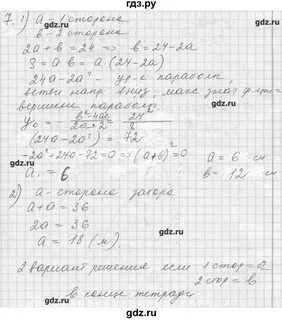 гдз.ру
7. 1) а - 1 сторона
в - 2 сторона
2а + в = 24 => в = 24 - 2а
S = а · в = а · (24 - 2а)
24а - 2а² - ур-е парабола,
ветви напр. вниз, макс знач ф-ции
вершине параболы.
y₀ = - (в² - 4ac)/(2a · 2) = 24²/8
(24а - 2а²) = 72
-2а² + 24а - 72 = 0 => (а + 6)² = 0
а₁ = 6. а = 6 см
в = 12 см
2) а - сторона загора
а + а = 36
2а = 36
а = 18 (м)
2 вариант решение если 1 стор = а
2 стор = в
в конце тетради
гдз.ру